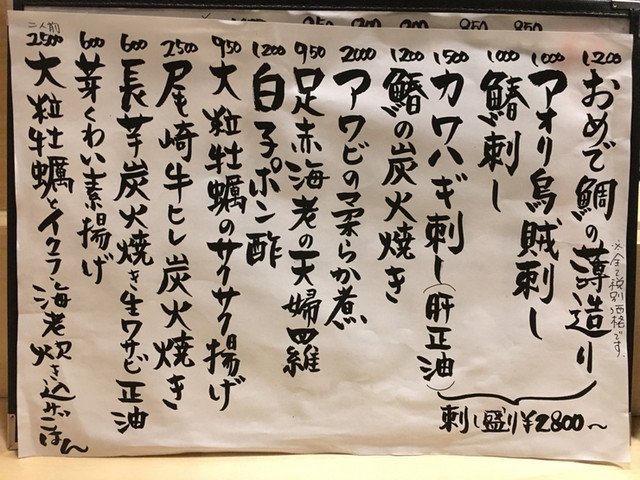 1200 おめで鯛の薄造り
※全て税別価格です。
1000 アオリ烏賊刺し
1000 鰆刺し
1500 カワハギ刺し(肝正油)
刺し盛り¥2800〜
1200 鰆の炭火焼き
2000 アワビの柔らか煮
950 足赤海老の天婦羅
1200 白子ポン酢
950 大粒牡蠣のサクサク揚げ
2500 尾崎牛ヒレ炭火焼き
600 長芋炭火焼き生ワサビ正油
600 芽くわい素揚げ
二人前
2500 大粒牡蠣とイクラ・海老炊き込みごはん